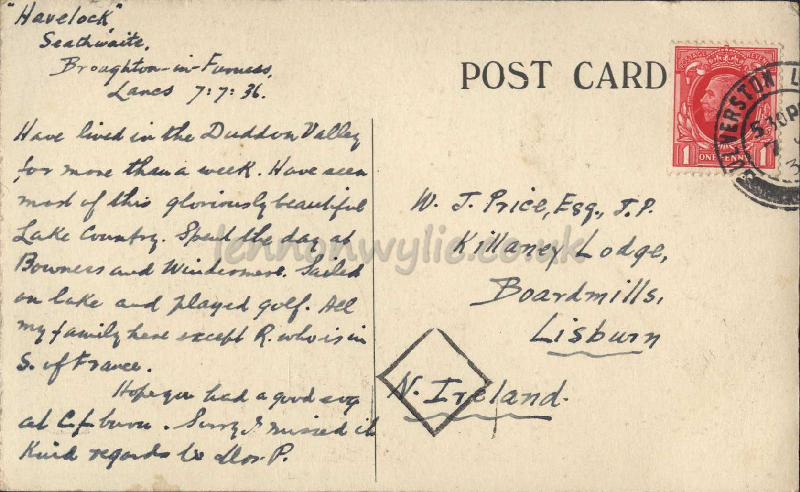 "Havelock"
Seathwaite,
Broughton-in-Furness,
Lancs 7:7:36.
Have lived in the Duddon Valley
for more than a week. Have seen
most of this gloriously beautiful
Lake Country. Spent the day at
Bowness and Windermere. Sailed
on lake and played golf. All
my family here except R. who is in
S. of France.
Hope you had a good
at. Sorry I missed it
Kind regards to P.
POST CARD
ONE PENNY
1 1
ULVERSTON L
5.30P
7
3
W. J. Price, Esq., J.P.
Killaney Lodge,
Boardmills,
Lisburn
N. Ireland.
lennonwylie.co.uk